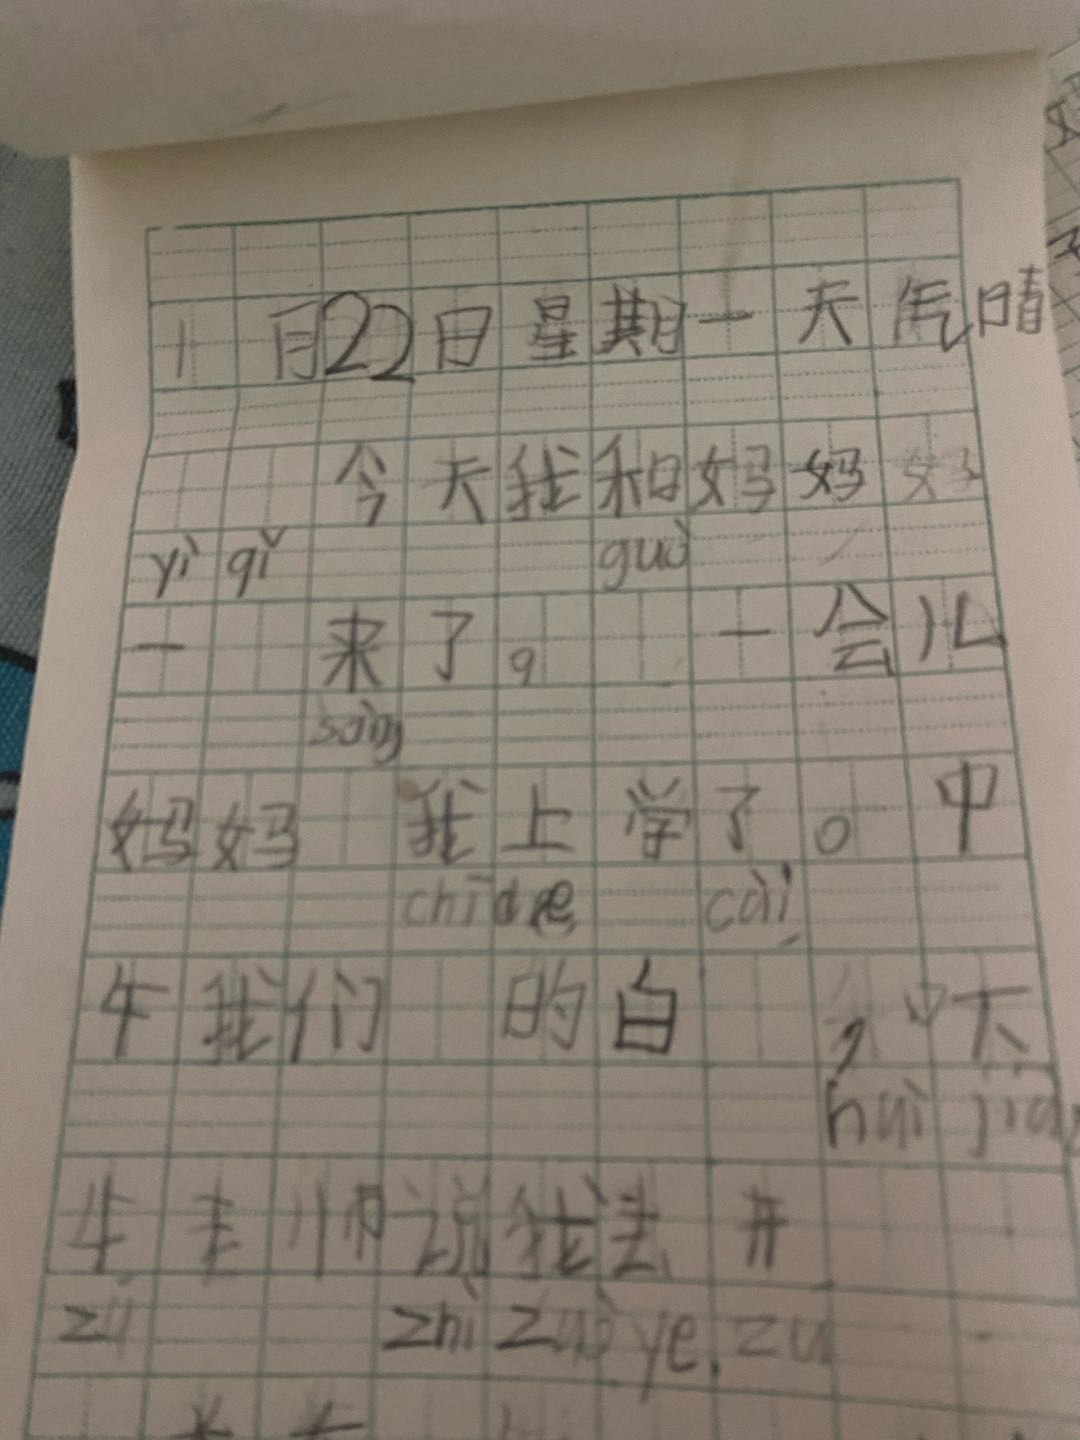 1月22日星期一天气晴
今天我和妈妈妈
yì qǐ guò
一来了。一会儿
sòng
妈妈我上学了。中
chī de cài
午我们的白,中下
huì jiā
午老师说我去开
zhì zuò ye. zu